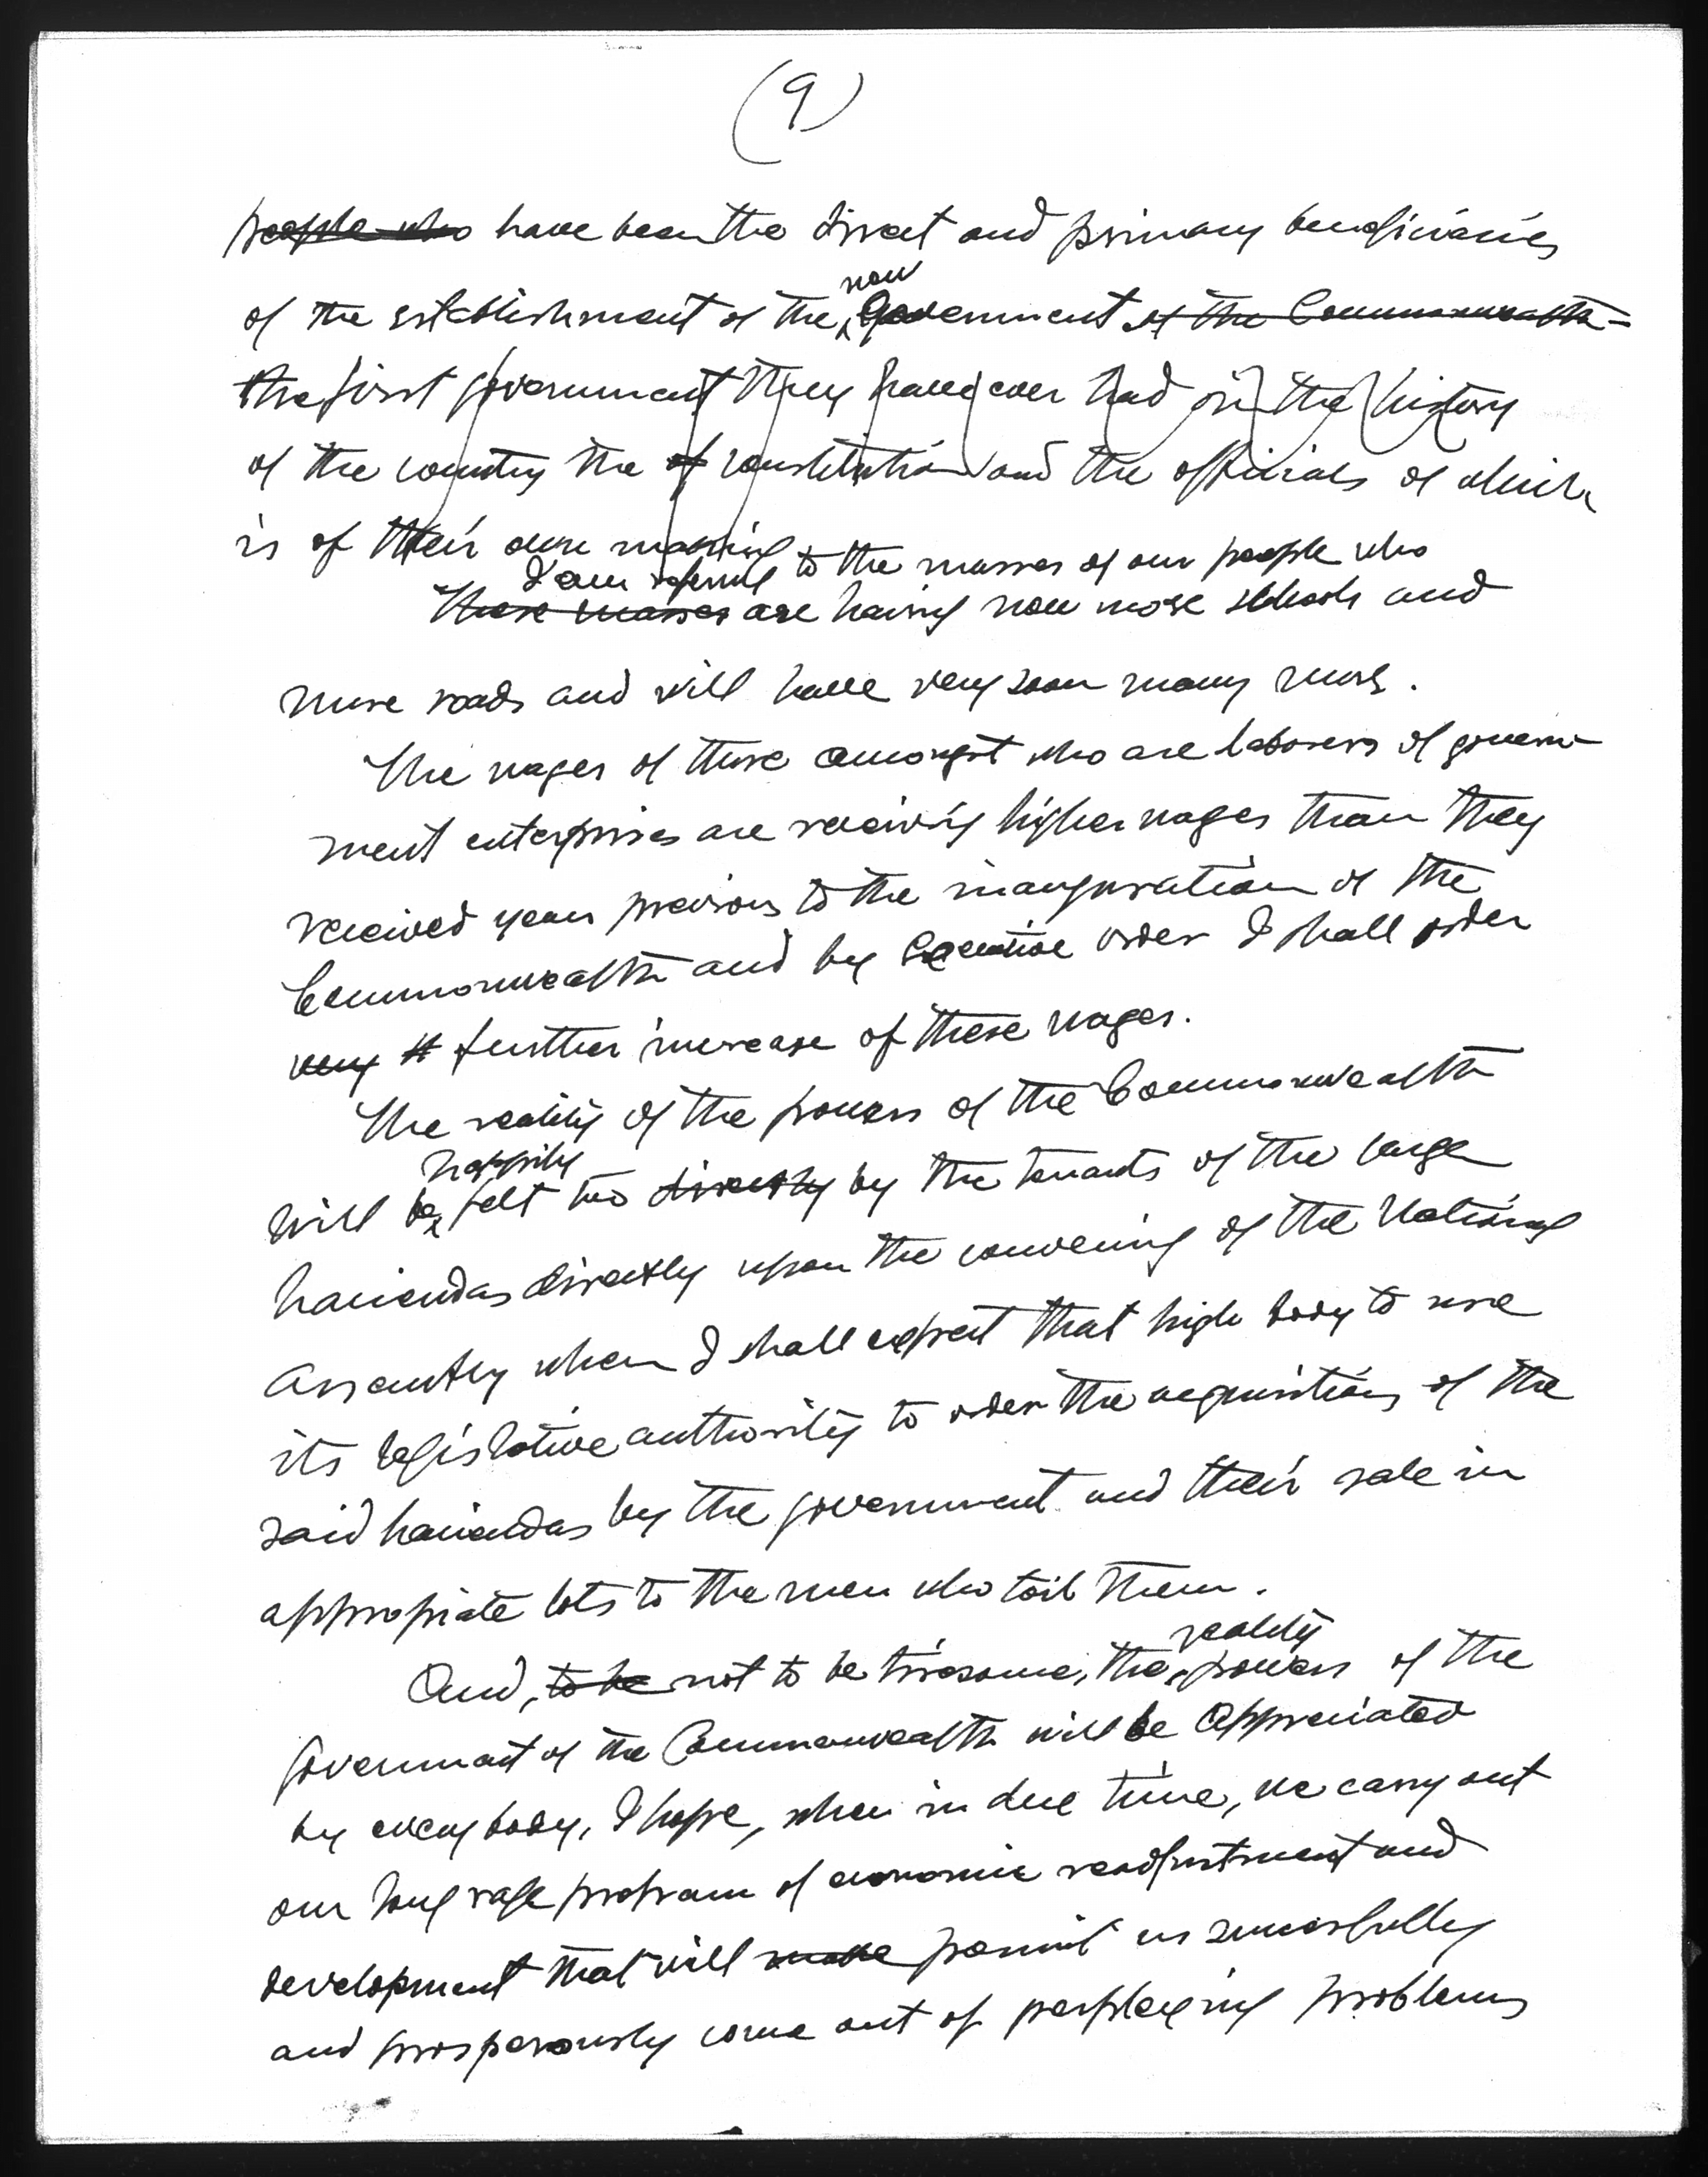 (9)
people who have been the direct and primary beneficiaries
new
of the establishment of the government of the Commonwealth -
the first government they have ever had in the history
of the country the of constitution and the officials of which
is of their own making
I am referring to the masses of our people who
These masses are having now more schools and
more roads and will have very soon many more.
The wages of those amongst who are laborers of govern-
ment enterprises are receiving higher wages than they
received years previous to the inauguration of the
Commonwealth and by Executive order I shall order
very # further increase of these wages.
The reality of the powers of the Commonwealth
happily
will be felt too directly by the tenants of the large
haciendas directly upon the convening of the National
Assembly when I shall expect that high body to use
its legislative authority to order the acquisition of the
said haciendas by the government and their sale in
appropiate lots to the men who toil them.
reality
And, to be not to be tiresome, the powers of the
Government of the Commonwealth will be appreciated
by everybody, I hope, when in due time, we carry out
our long rage program of economic readjustment and
development that will make permit us sucessfully
and prosperously come out of perplexing problems